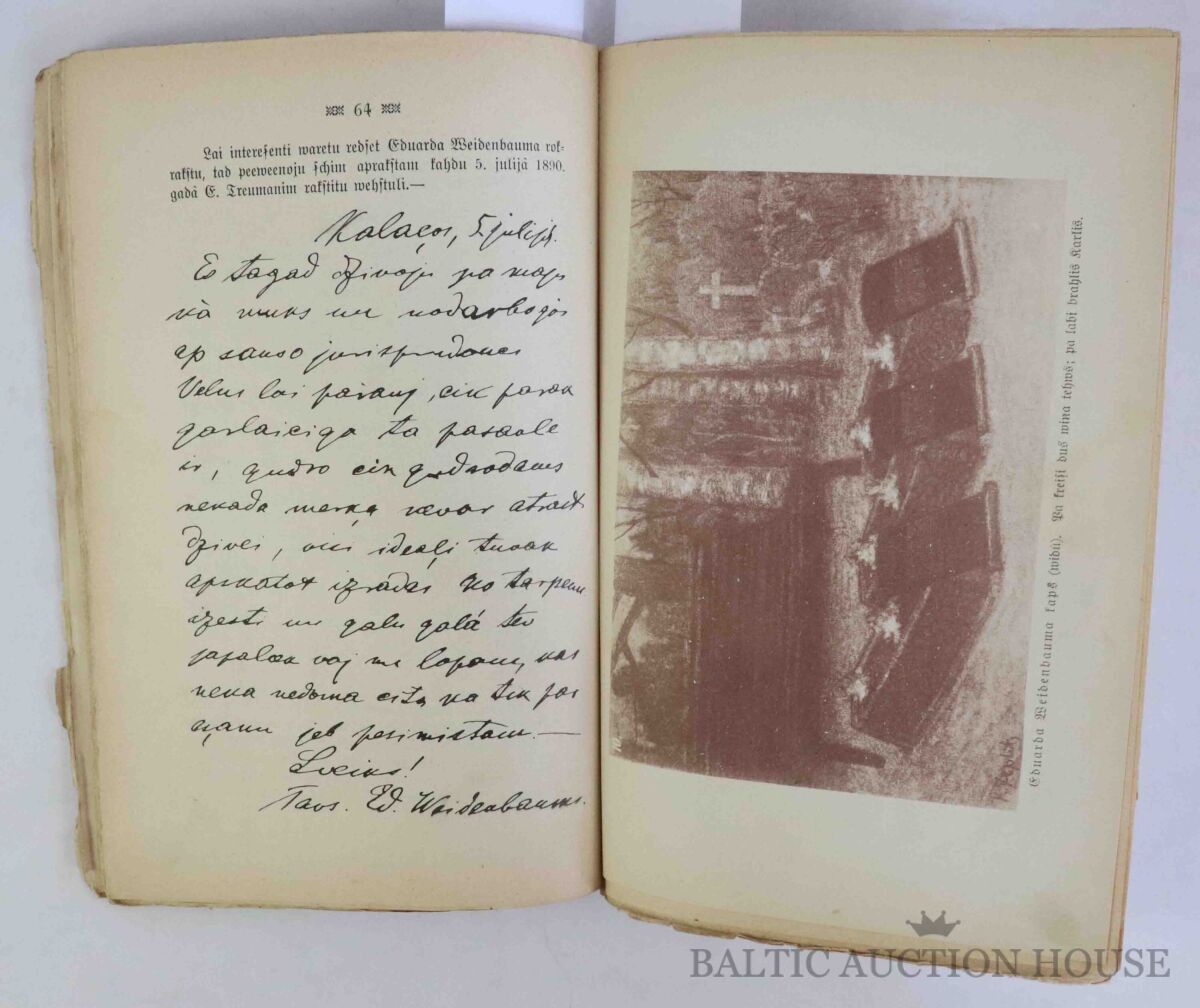 64
Lai intereſenti waretu redſet Eduarda Weidenbauma rok-
rakſtu, tad peeweenoju ſchim aprakſtam kahdu 5. julijā 1890.
gadā E. Treumanim rakſtitu wehſtuli.—
Kalaços, 5 julijā.
Es tagad dzivoju pa maju
kā muks un nodarbojos
ap sauso jurisprudenci
Velns lai parauj, cik paraк
garlaiciga ta pasaule
ir, gudro cik gudrodams
nekada merķa nevar atrast
dzivei, visi ideali tuvak
apskatot izradas
un galu galā tev
japaliek vaj nu lopam, kas
neka nedoma
jeb pesimistam.—
Sveiks!
Tavs. Ed. Weidenbaums.
Eduarda Weidenbauma kaps (widū). Pa kreiſi dus wina tehws; pa labi brahlis Karlis.
BALTIC AUCTION HOUSE